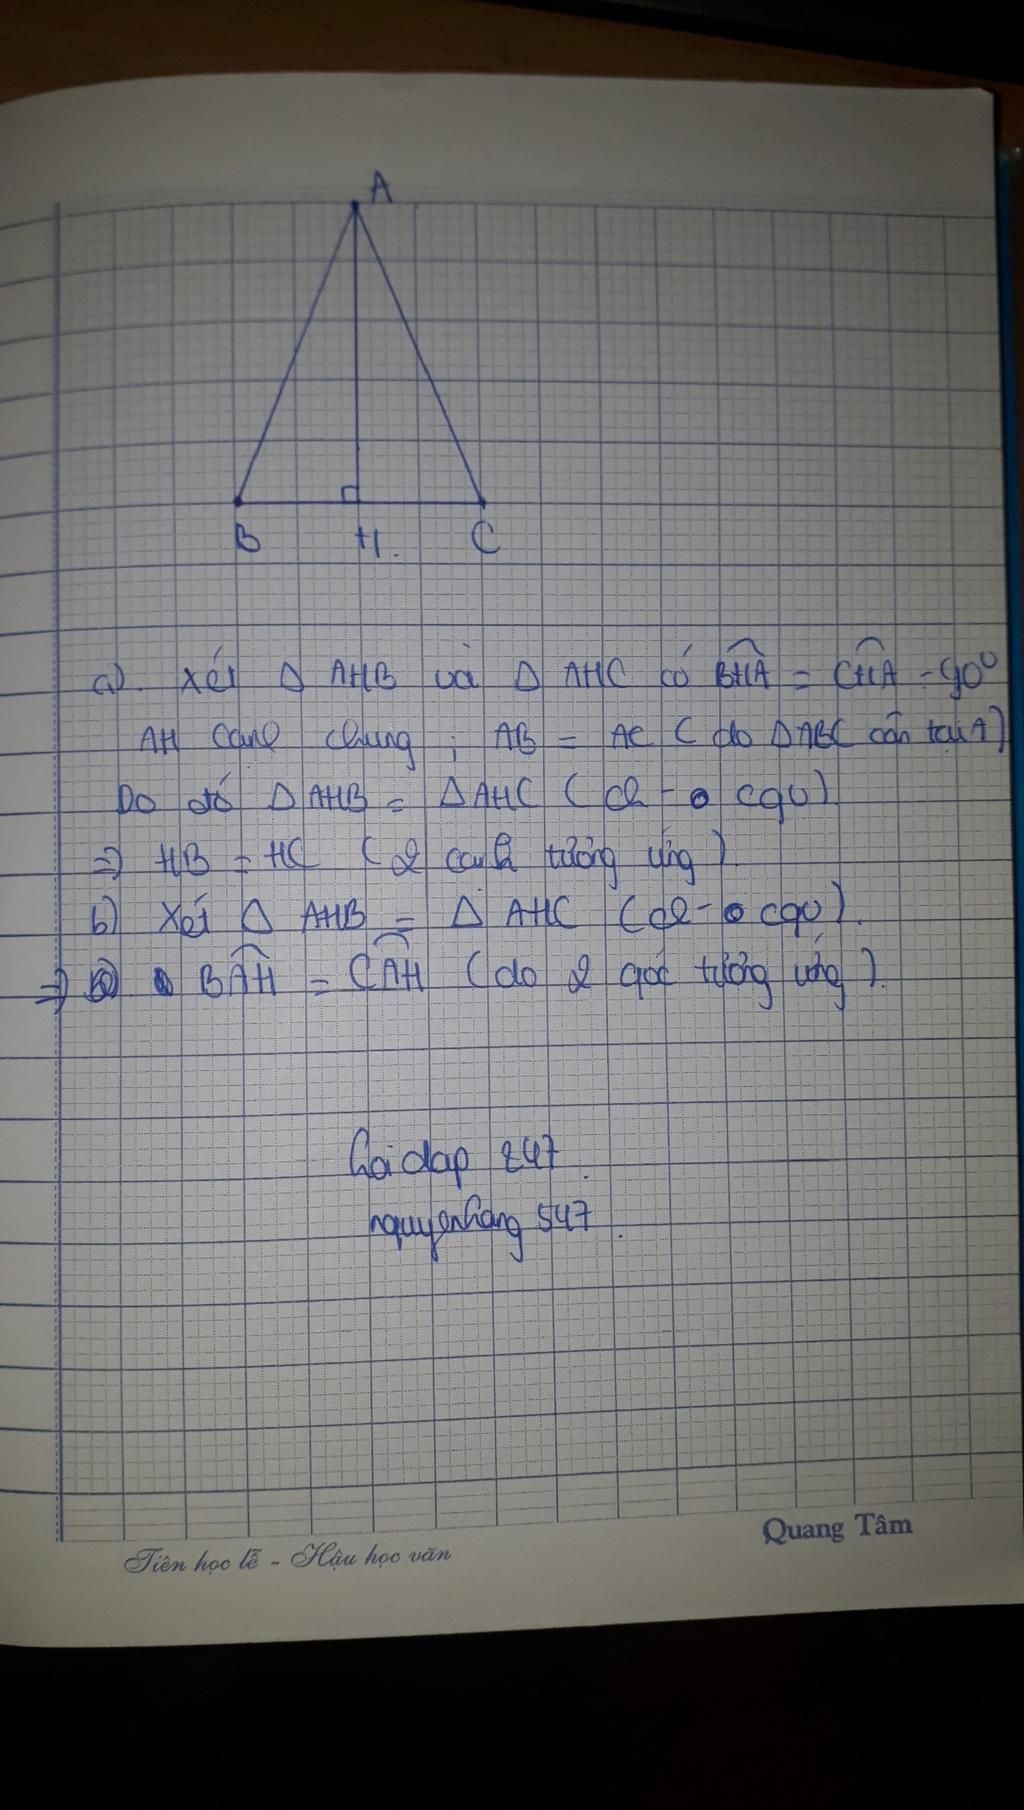 A
B H. C
a). Xét Δ AHB và Δ AHC có BHA = CHA = 90°
AH cạnh chung ; AB = AC ( do ΔABC cân tại A)
Do đó ΔAHB = ΔAHC ( ch - cgv)
=> HB = HC ( 2 cạnh tương ứng )
b) Xét Δ AHB = Δ AHC (ch - cgv).
=> BAH = CAH (do 2 góc tương ứng ).
hoidap 247.
nguyenhang 547.
Quang Tâm
Tiên học lễ - Hậu học văn